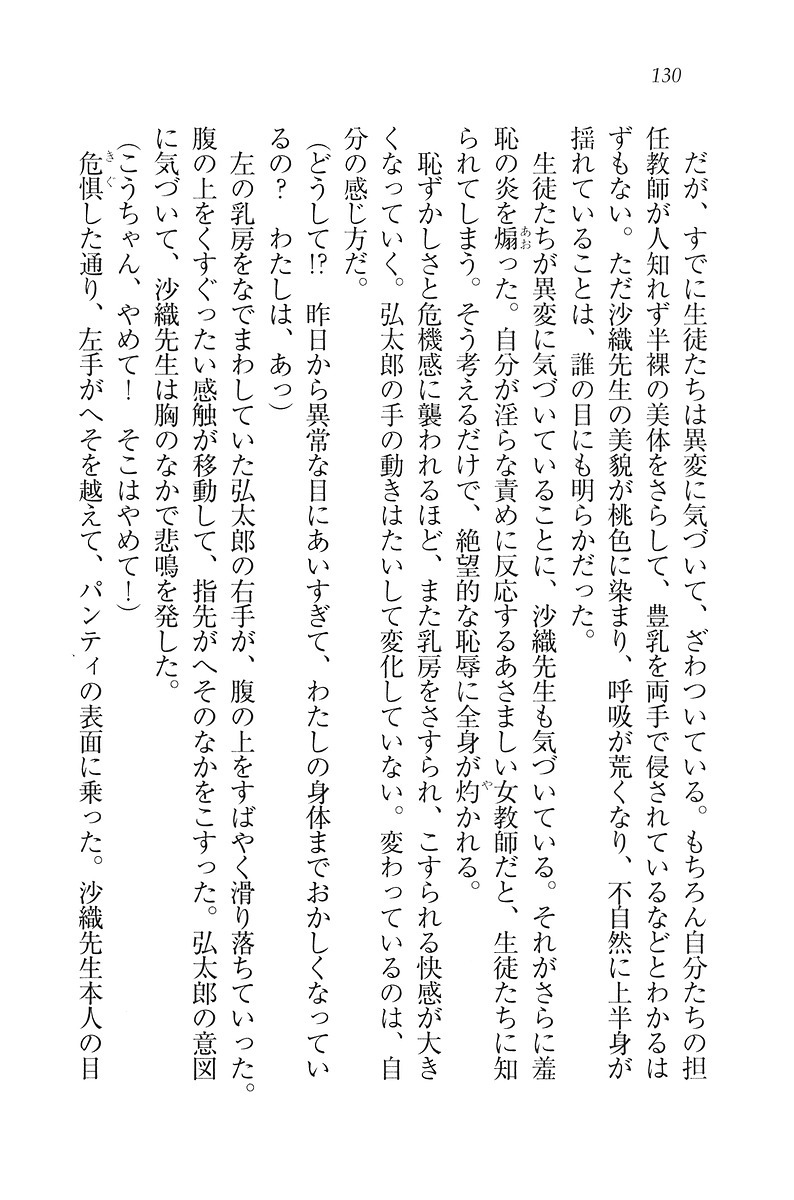 130
だが、すでに生徒たちは異変に気づいて、ざわついている。もちろん自分たちの担
任教師が人知れず半裸の美体をさらして、豊乳を両手で侵されているなどとわかるは
ずもない。ただ沙織先生の美貌が桃色に染まり、呼吸が荒くなり、不自然に上半身が
揺れていることは、誰の目にも明らかだった。
生徒たちが異変に気づいていることに、沙織先生も気づいている。それがさらに羞
恥の炎を煽った。自分が淫らな責めに反応するあさましい女教師だと、生徒たちに知
られてしまう。そう考えるだけで、絶望的な恥辱に全身が灼かれる。
恥ずかしさと危機感に襲われるほど、また乳房をさすられ、こすられる快感が大き
くなっていく。弘太郎の手の動きはたいして変化していない。変わっているのは、自
分の感じ方だ。
(どうして!?　昨日から異常な目にあいすぎて、わたしの身体までおかしくなってい
るの?　わたしは、あっ)
左の乳房をなでまわしていた弘太郎の右手が、腹の上をすばやく滑り落ちていった。
腹の上をくすぐったい感触が移動して、指先がへそのなかをこすった。弘太郎の意図
に気づいて、沙織先生は胸のなかで悲鳴を発した。
(こうちゃん、やめて!　そこはやめて!)
危惧した通り、左手がへそを越えて、パンティの表面に乗った。沙織先生本人の目